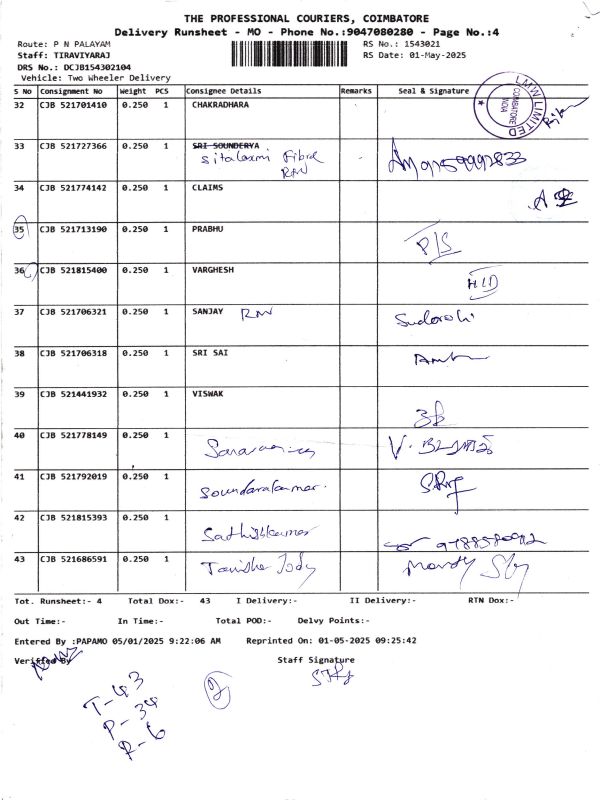 THE PROFESSIONAL COURIERS, COIMBATORE
Delivery Runsheet - MO - Phone No.:9047080280 - Page No.:4
Route: P N PALAYAM RS No.: 1543021
Staff: TIRAVIYARAJ RS Date: 01-May-2025
DRS No.: DCJB154302104
Vehicle: Two Wheeler Delivery
S NO Consignment No Weight PCS Consignee Details Remarks Seal & Signature
32 CJB 521701410 0.250 1 CHAKRADHARA LMW LIMITED COIMBATORE INDIA
33 CJB 521727366 0.250 1 SRI SOUNDERYA
Sitalaxmi Fibre
RN 9159992833
34 CJB 521774142 0.250 1 CLAIMS
35 CJB 521713190 0.250 1 PRABHU P/S
36 CJB 521815400 0.250 1 VARGHESH H/D
37 CJB 521706321 0.250 1 SANJAY RN
38 CJB 521706318 0.250 1 SRI SAI
39 CJB 521441932 0.250 1 VISWAK
40 CJB 521778149 0.250 1
41 CJB 521792019 0.250 1 Soundarakumar.
42 CJB 521815393 0.250 1 Sathishkumar
43 CJB 521686591 0.250 1 Tanisha Jody
Tot. Runsheet:- 4 Total Dox:- 43 I Delivery:- II Delivery:- RTN Dox:-
Out Time:- In Time:- Total POD:- Delvy Points:-
Entered By :PAPAMO 05/01/2025 9:22:06 AM Reprinted On: 01-05-2025 09:25:42
Verified By Staff Signature
T-43
P-34
R-6